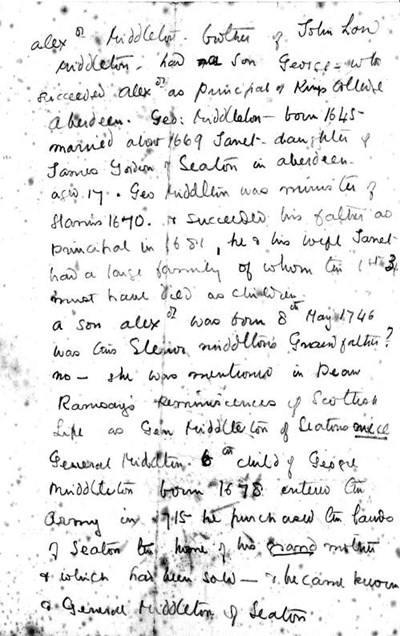 Alex dr Middleton - brother of John Lord
Middleton - had a son George - who
succeeded Alexdr as Principal of Kings College
Aberdeen. Geo: Middleton - born 1645 -
married about 1669 Janet - daughter of
James Gordon of Seaton in Aberdeen -
aged 17. Geo Middleton was minister of
Glamis 1670. & succeeded his father as
Principal in 1681, he & his wife Janet -
had a large family of whom the 1st 3
must have died as children
a son Alexdr was born 8th May 1746
was this Elenor Middletons Grandfather?
no - she was mentioned in Dean
Ramsay's Reminiscences of Scottish
Life as Gen Middleton of Seatons niece
General Middleton. 6th child of George
Middleton born 1678 entered the
Army in 1715 he purchased the lands
of Seaton the home of his grand mother
& which had been sold - & became known
as General Middleton of Seaton